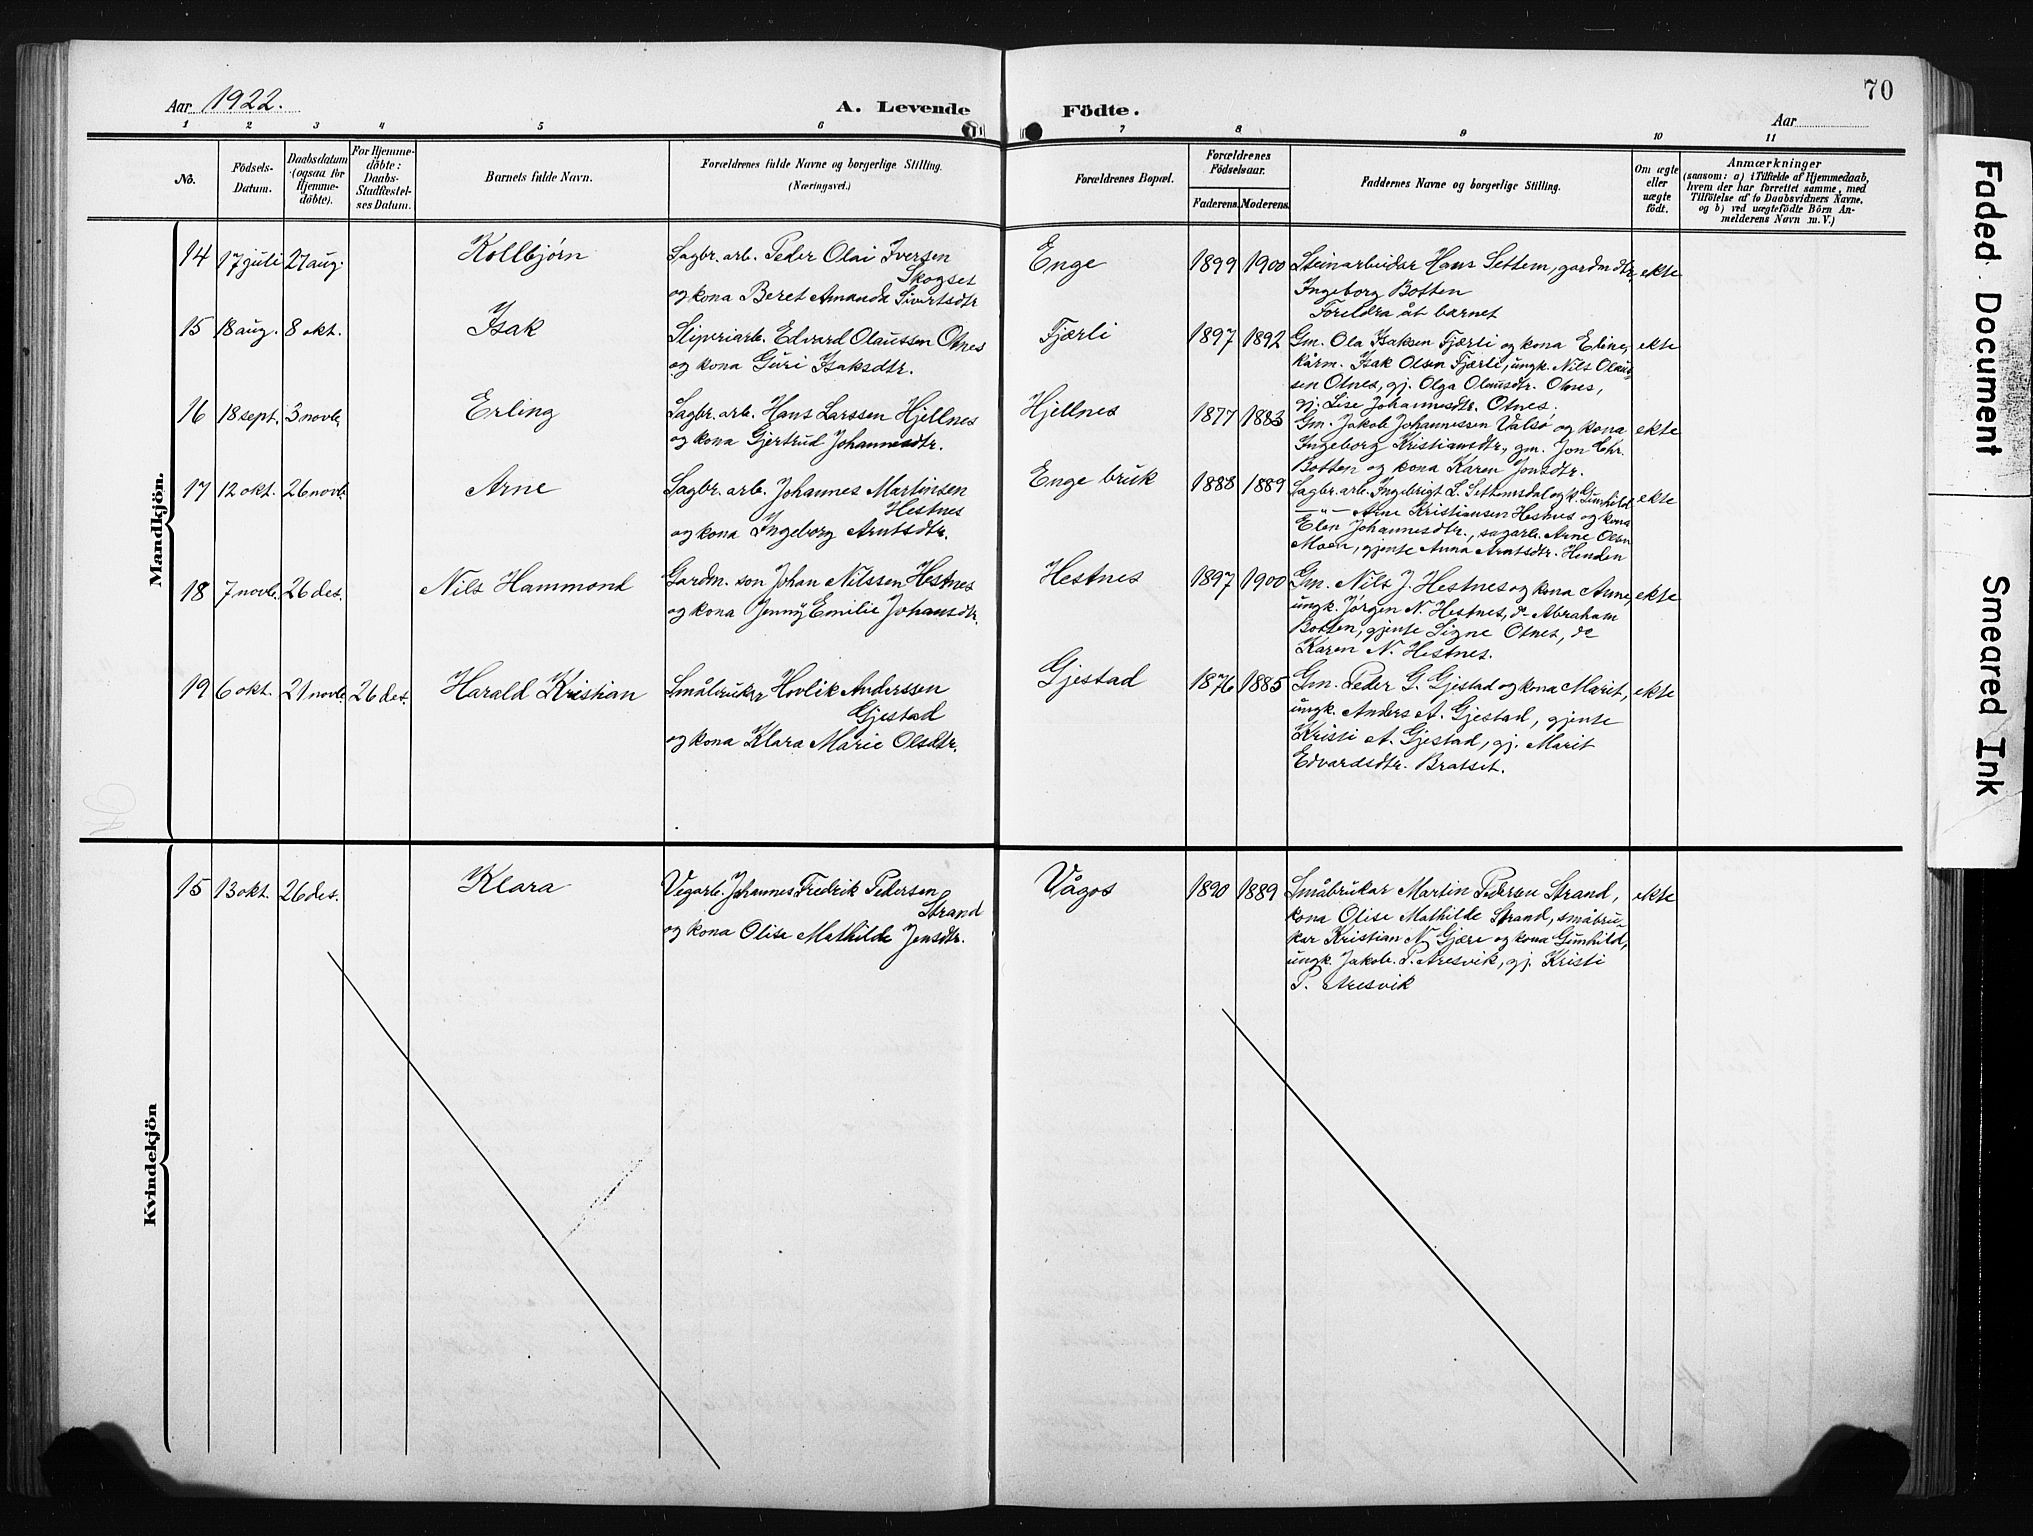 70
Aar 1922.
A. Levende Födte.
Aar
1 2 3 4 5 6 7 8 9 10 11
No.
Födsels-
Datum.
Daabsdatum
(ogsaa for
Hjemme-
döbte).
For Hjemme-
döbte:
Daabs-
Stadfæstel-
ses Datum.
Barnets fulde Navn.
Forældrenes fulde Navne og borgerlige Stilling.
(Næringsvei.)
Forældrenes Bopæl.
Forældrenes
Födselsaar.
Faderens. Moderens.
Faddernes Navne og borgerlige Stilling.
Om ægte
eller
uægte
født.
Anmærkninger
(saasom: a) i Tilfælde af Hjemmedaab,
hvem der har forrettet samme, med
Tilföielse af to Daabsvidners Navne,
og b) ved uægtefödte Börn An-
melderens Navn m. V.)
Mandkjön.
14 17 juli 27 aug. Kollbjørn
Sagbr. arb. Peder Olai Iversen
Skogset
og kona Beret Amanda Sivertsdtr
Enge 1899 1900
Steinarbeidar Hans Settem, gardm.dtr.
Ingeborg Botten
Foreldra åt barnet
ekte
15 18 aug. 8 okt. Isak
Sliperiarb. Edvard Olaussen Otnes
og kona Guri Isaksdtr.
Fjærli 1897 1892
Gm. Ola Isaksen Fjærli og kona Eline,
kårm. Isak Olsen Fjærli, ungk. Nils Olaus-
sen Otnes, gj. Olga Olausdtr. Otnes,
gj. Lise Johannesdtr. Otnes.
ekte
16 18 sept. 3 novb. Erling
Sagbr. arb. Hans Larssen Hjellnes
og kona Gjertrud Johannesdtr.
Hjellnes 1877 1883
Gm. Jakob Johannessen Valsø og kona
Ingeborg Kristiansdtr, gm. Jon Chr.
Botten og kona Karen Jonsdtr.
ekte
17 12 okt. 26 novb. Arne
Sagbr. arb. Johannes Martinsen
Hestnes
og kona Ingeborg Arntsdtr.
Enge bruk 1888 1889
Sagbr. arb. Ingebrigt L. Settemsdal og k. Gunhild
— " — Arne Kristiansen Hestnes og kona
Elen Johannesdtr., sagarb. Arne Olsen
Moen, gjente Anna Arntsdtr. Henden
ekte
18 7 novb. 26 des. Nils Hammond
Gardm. son Johan Nilssen Hestnes
og kona Jenny Emilie Johansdtr.
Hestnes 1897 1900
Gm. Nils J. Hestnes og kona Anne,
ungk. Jørgen N. Hestnes, do Abraham
Botten, gjente Signe Otnes, do
Karen N. Hestnes.
ekte
19 6 okt. 21 novb. 26 des. Harald Kristian
Småbrukar Hovlik Anderssen
Gjestad
og kona Klara Marie Olsdtr.
Gjestad 1876 1885
Gm. Peder G. Gjestad og kona Marit,
ungk. Anders A. Gjestad, gjente
Kristi A. Gjestad, gj. Marit
Edvardsdtr. Bratset.
ekte
Kvindekjön
15 13 okt. 26 des. Klara
Vegarb. Johannes Fredrik Pedersen
Strand
og kona Olise Mathilde Jensdtr.
Vågos 1890 1889
Småbrukar Martin Pedersen Strand,
kona Olise Mathilde Strand, småbru-
kar Kristian N. Gjære og kona Gunhild,
ungk. Jakob P. Aresvik, gj. Kristi
P. Aresvik
ekte
Faded Document
Smeared Ink